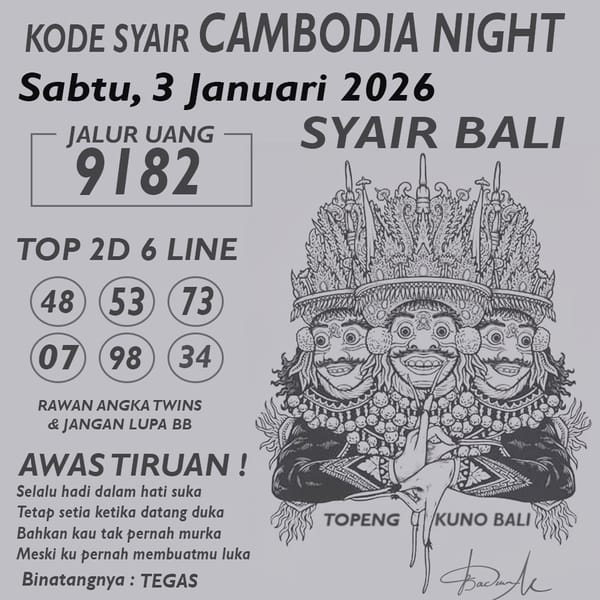 KODE SYAIR CAMBODIA NIGHT
Sabtu, 3 Januari 2026
JALUR UANG
9182
SYAIR BALI
TOP 2D 6 LINE
48 53 73
07 98 34
RAWAN ANGKA TWINS
& JANGAN LUPA BB
AWAS TIRUAN !
Selalu hadi dalam hati suka
Tetap setia ketika datang duka
Bahkan kau tak pernah murka
Meski ku pernah membuatmu luka
Binatangnya : TEGAS
TOPENG KUNO BALI